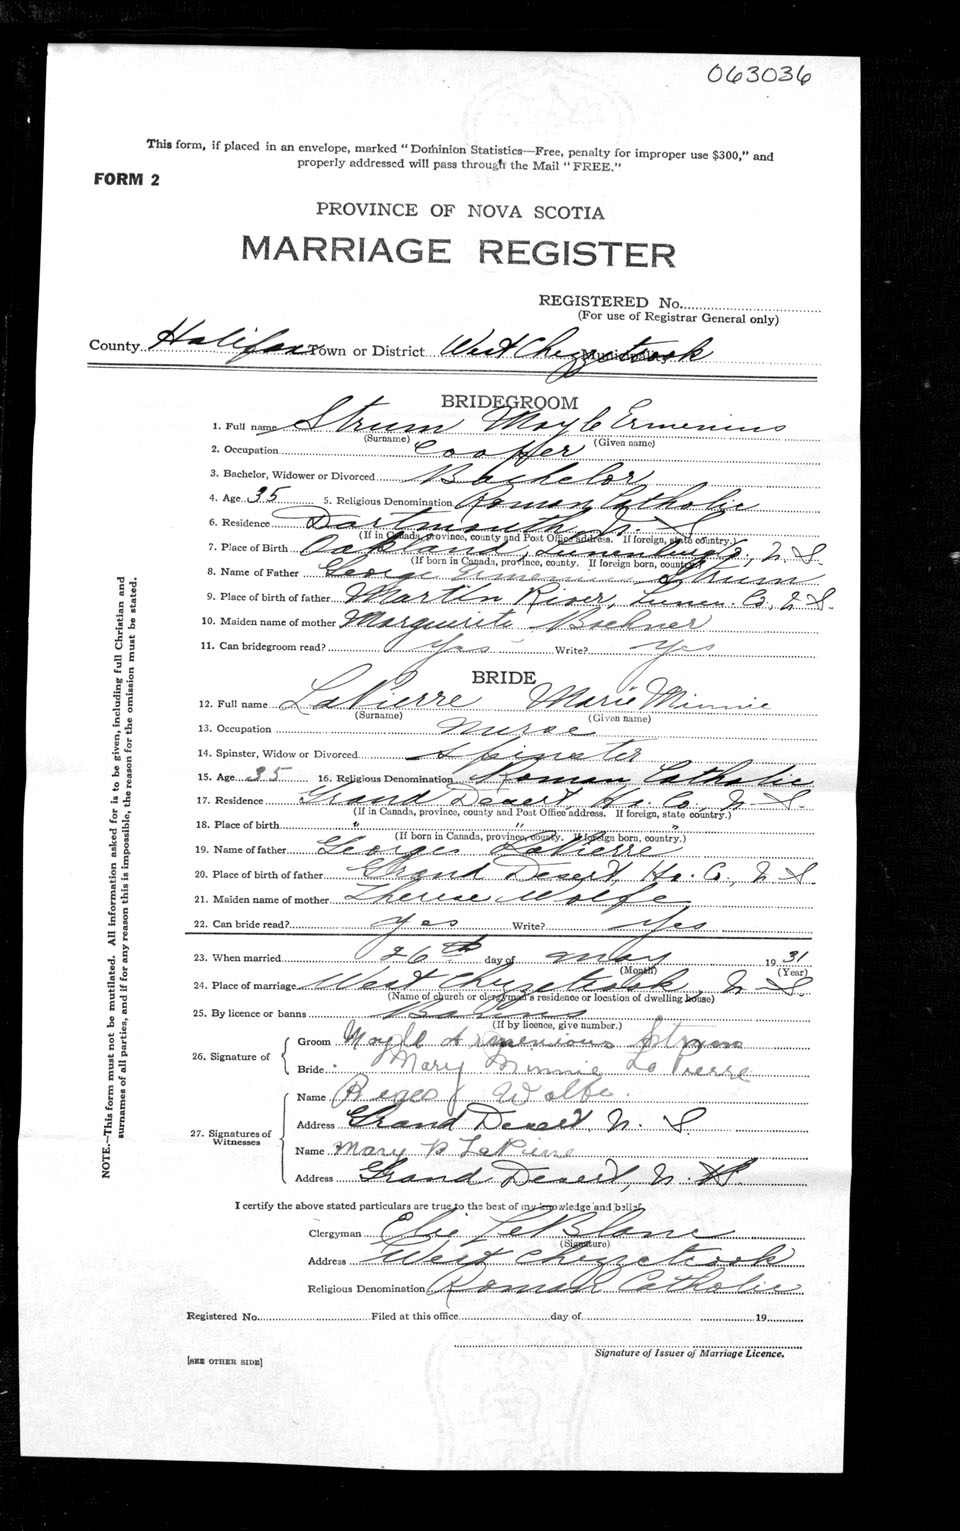 063036
This form, if placed in an envelope, marked "Dominion Statistics—Free, penalty for improper use $300," and
properly addressed will pass through the Mail "FREE."
FORM 2
PROVINCE OF NOVA SCOTIA
MARRIAGE REGISTER
REGISTERED No.
(For use of Registrar General only)
County Halifax Town or District West Chezzetcook
BRIDEGROOM
1. Full name Strum Moyle Ermenius
(Surname) (Given name)
2. Occupation Cooper
3. Bachelor, Widower or Divorced Bachelor
4. Age 35 5. Religious Denomination Roman Catholic
6. Residence Dartmouth, N. S.
(If in Canada, province, county and Post Office address. If foreign, state country.)
7. Place of Birth Oakland, Lunenburg Co., N. S.
(If born in Canada, province, county. If foreign born, country.)
8. Name of Father George Ermenius Strum
9. Place of birth of father Martin River, Lunen. Co., N. S.
10. Maiden name of mother Marguerite Bochner
11. Can bridegroom read? Yes Write? Yes
BRIDE
12. Full name LaPierre Marie Minnie
(Surname) (Given name)
13. Occupation nurse
14. Spinster, Widow or Divorced Spinster
15. Age 35 16. Religious Denomination Roman Catholic
17. Residence Grand Desert, Hx. Co., N. S.
(If in Canada, province, county and Post Office address. If foreign, state country.)
18. Place of birth " " "
(If born in Canada, province, county. If foreign born, country.)
19. Name of father Georges LaPierre
20. Place of birth of father Grand Desert, Hx. Co., N. S.
21. Maiden name of mother Therese Wolfe
22. Can bride read? Yes Write? Yes
23. When married 26th day of May 1931
(Month) (Year)
24. Place of marriage West Chezzetcook, N. S.
(Name of church or clergyman's residence or location of dwelling house)
25. By licence or banns Banns
(If by licence, give number.)
26. Signature of
Groom Moyle Strum
Bride Mary Minnie La Pierre
27. Signatures of
Witnesses
Name Wolfe.
Address Grand Desert, N. S.
Name Mary LaPierre
Address Grand Desert, N. S.
I certify the above stated particulars are true to the best of my knowledge and belief.
Clergyman Elie LeBlanc
(Signature)
Address West Chezzetcook
Religious Denomination Roman Catholic
Registered No. Filed at this office day of 19
Signature of Issuer of Marriage Licence.
[SEE OTHER SIDE]
NOTE.—This form must not be mutilated. All information asked for is to be given, including full Christian and
surnames of all parties, and if for any reason this is impossible, the reason for the omission must be stated.